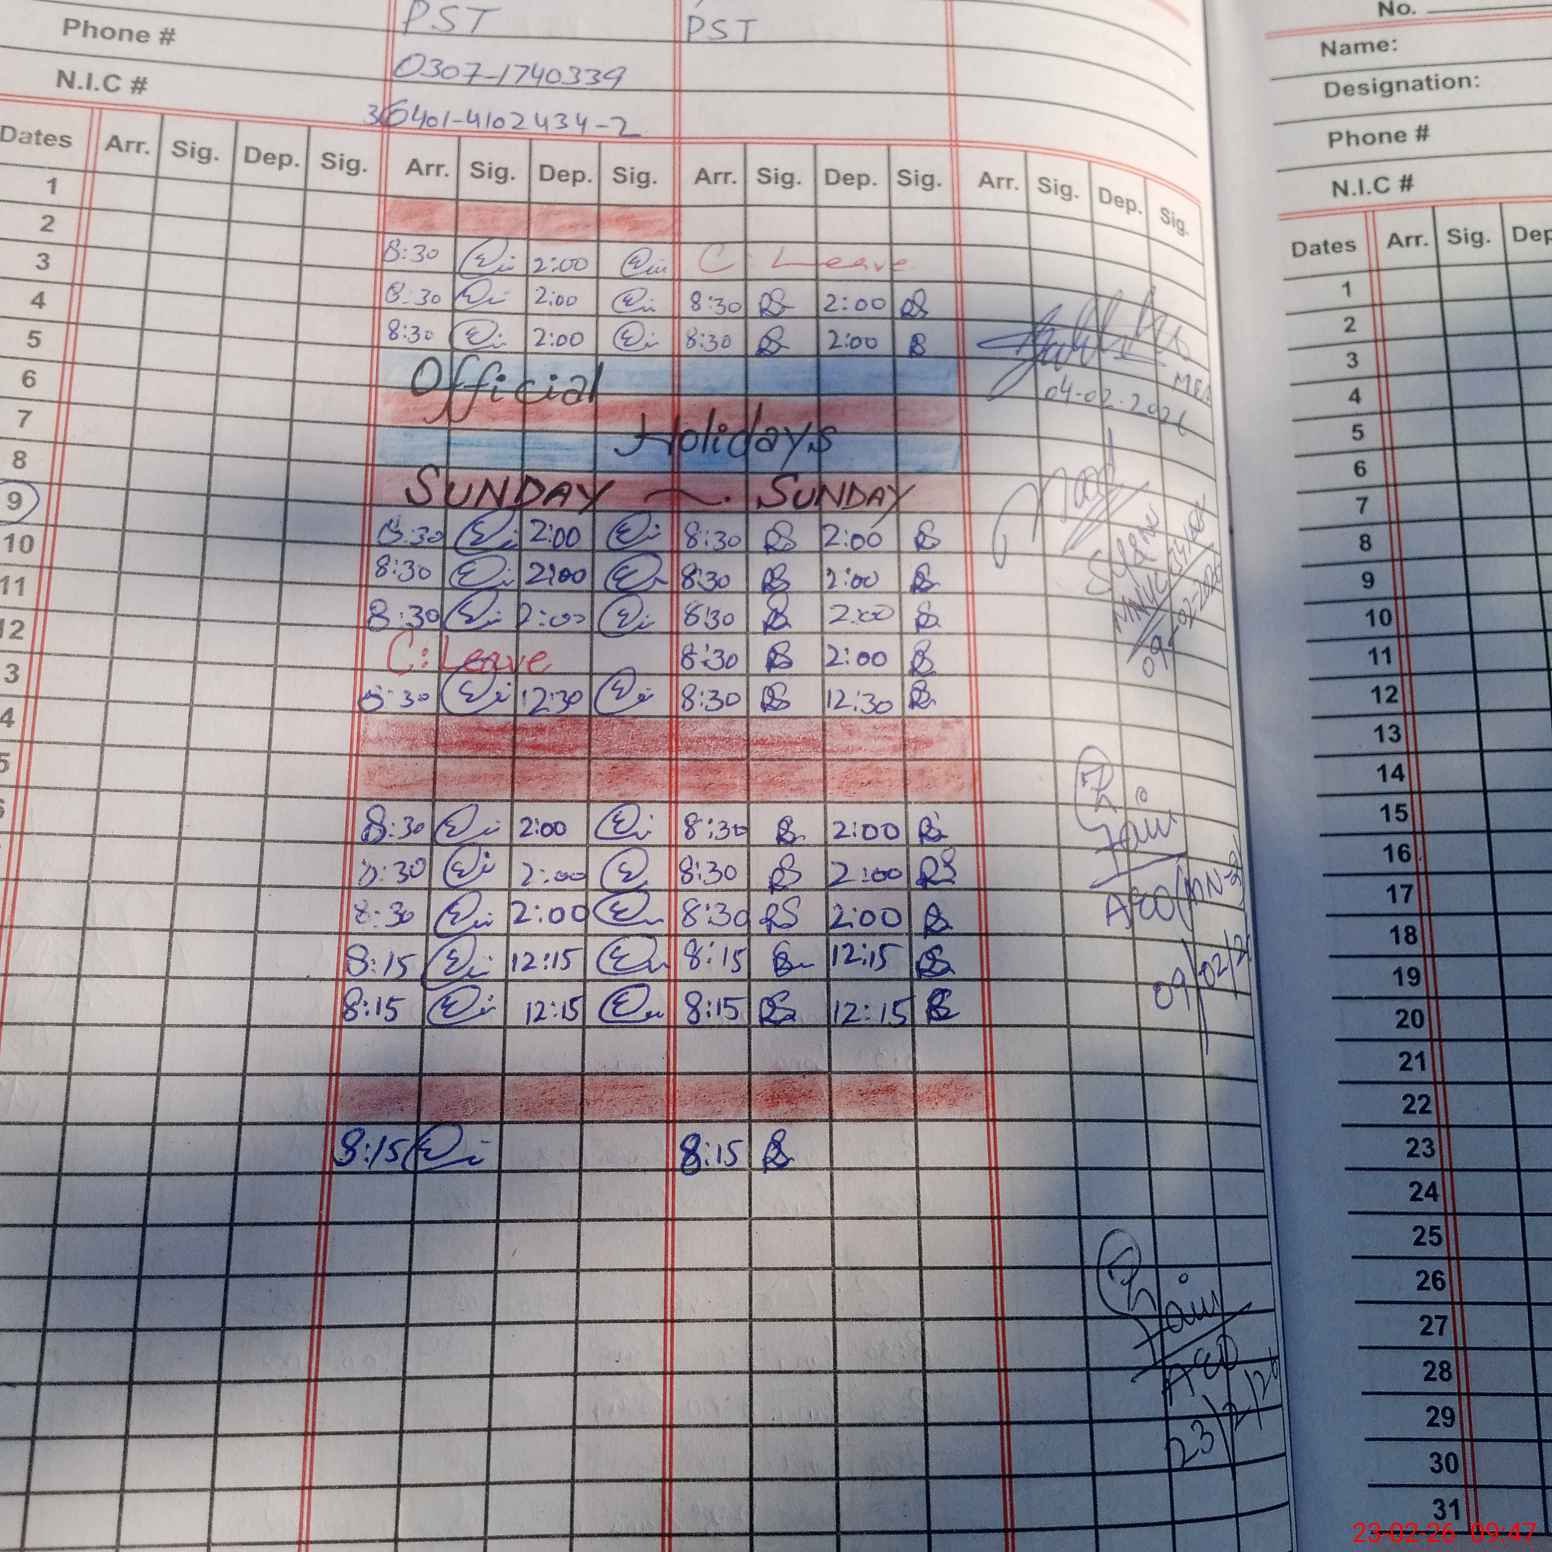 Phone # PST PST
N.I.C # 0307-1740339
36401-4102434-2
Dates Arr. Sig. Dep. Sig. Arr. Sig. Dep. Sig. Arr. Sig. Dep. Sig. Arr. Sig. Dep. Sig.
1
2
3 8:30 2:00 C. Leave
4 8:30 2:00 8:30 RS 2:00 RS
5 8:30 2:00 8:30 RS 2:00 RS
6 Official
7
8 Holidays
9 SUNDAY ~. SUNDAY
10 8:30 2:00 8:30 RS 2:00 RS
11 8:30 2:00 8:30 RS 2:00 RS
12 8:30 2:00 8:30 RS 2:00 RS
3 C: Leave 8:30 RS 2:00 RS
4 8:30 12:30 8:30 RS 12:30 RS
5
8:30 2:00 8:30 RS 2:00 RS
8:30 2:00 8:30 RS 2:00 RS
8:30 2:00 8:30 RS 2:00 RS
8:15 12:15 8:15 RS 12:15 RS
8:15 12:15 8:15 RS 12:15 RS
8:15 8:15 RS
04-02-2026
AEO
09/02/26
AEO
23/2/26
No.
Name:
Designation:
Phone #
N.I.C #
Dates Arr. Sig. Dep
1
2
3
4
5
6
7
8
9
10
11
12
13
14
15
16
17
18
19
20
21
22
23
24
25
26
27
28
29
30
31
23-02-26 09:47